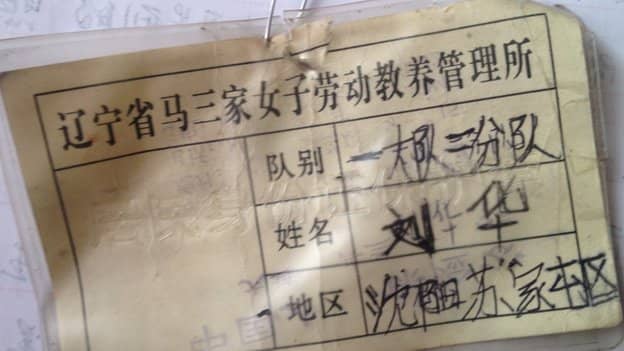 辽宁省马三家女子劳动教养管理所
队别 一大队二分队
姓名 刘华
地区 沈阳苏家屯区